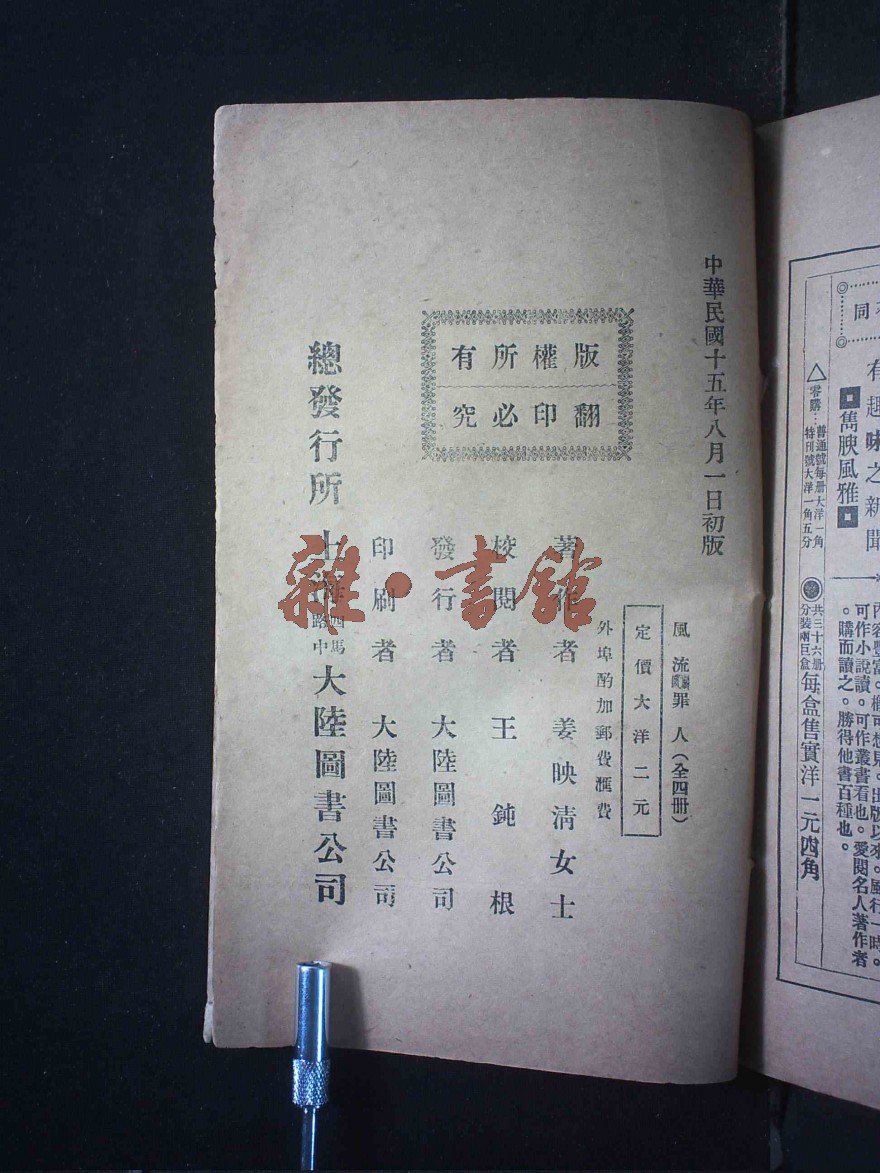 有趣味之新聞
雋腴風雅
△零購：普通號每冊大洋一角
特刊號大洋一角五分
共三十六冊
分裝兩巨盒
每盒售實洋一元四角
可作小說讀。可作叢書看也。愛閱名人著作者
。購而讀之。勝得他書百種也。
中華民國十五年八月一日初版
版權所有
翻印必究
風流罪人（全四冊）
定價大洋二元
外埠酌加郵費滙費
著作者 姜映清女士
校閱者 王鈍根
發行者 大陸圖書公司
印刷者 大陸圖書公司
總發行所 上海四馬路中 大陸圖書公司
雜·書館